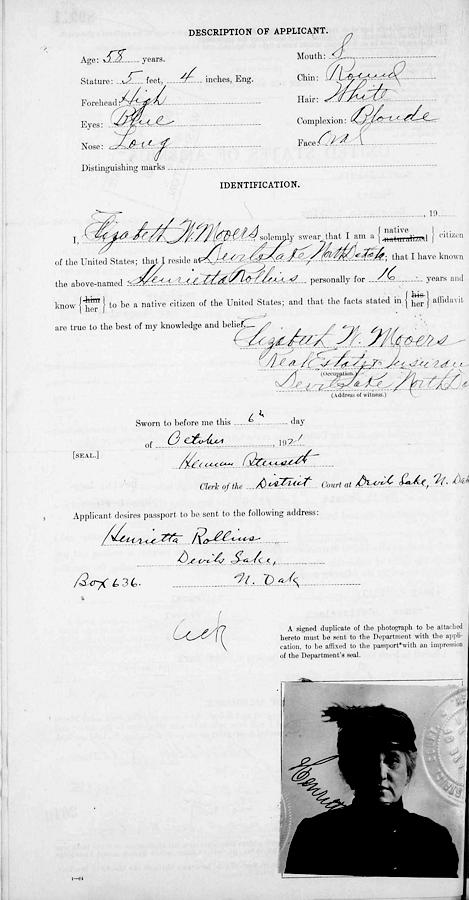 DESCRIPTION OF APPLICANT.
Age: 58 years.
Mouth:
Stature: 5 feet, 4 inches, Eng.
Chin: Round
Forehead: High
Hair: White
Eyes: Blue
Complexion: Blonde
Nose: Long
Face: Oval
Distinguishing marks
IDENTIFICATION.
, 19
I, Elizabeth W. Mooers solemnly swear that I am a {native naturalized} citizen
of the United States; that I reside at Devils Lake, North Dakota; that I have known
the above-named Henrietta Rollins personally for 16 years and
know {him her} to be a native citizen of the United States; and that the facts stated in {his her} affidavit
are true to the best of my knowledge and belief.
Elizabeth W. Mooers
Real Estate & Insuran
(Occupation.)
Devils Lake North Da
(Address of witness.)
Sworn to before me this 6th day
of October, 1921
[SEAL.]
Herman Stenseth
Clerk of the District Court at Devils Lake, N. Dak
Applicant desires passport to be sent to the following address:
Henrietta Rollins
Devils Lake,
Box 636. N. Dak
A signed duplicate of the photograph to be attached
hereto must be sent to the Department with the appli-
cation, to be affixed to the passport with an impression
of the Department's seal.
Henriett